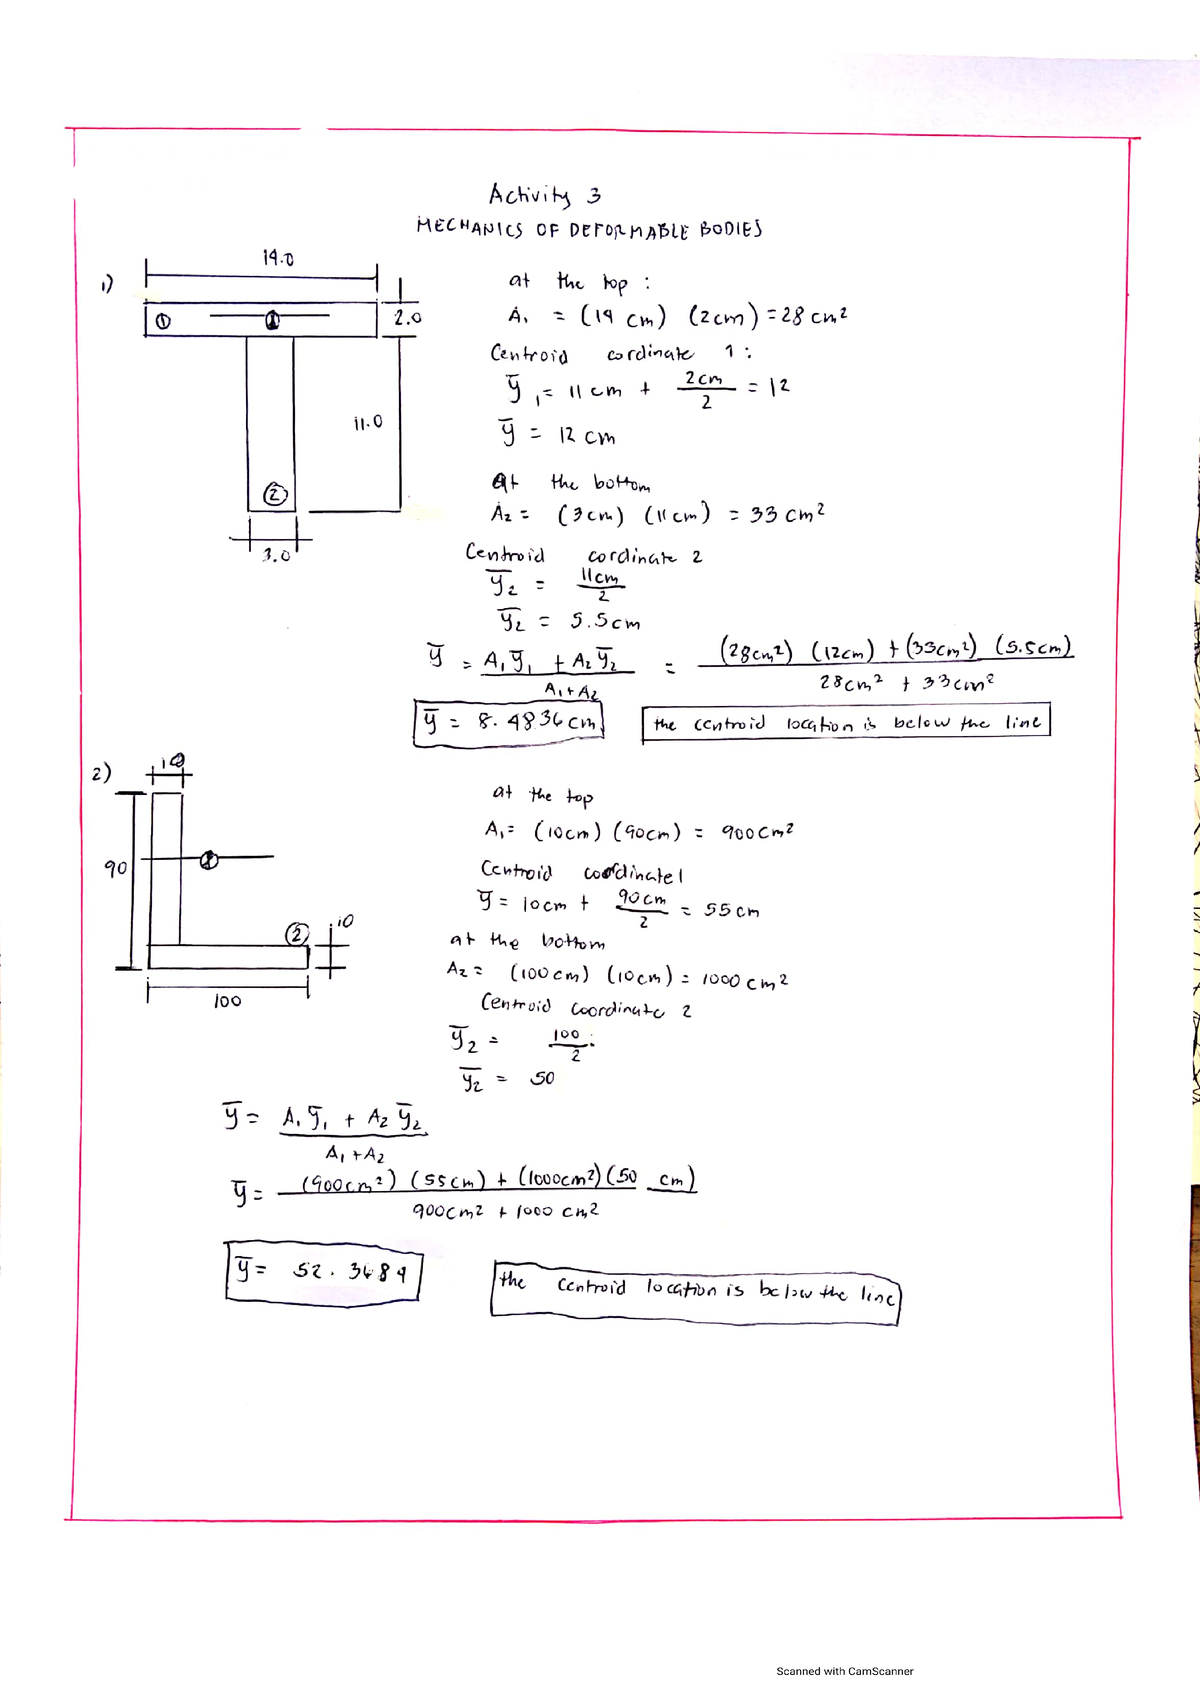 Activity 3
MECHANICS OF DEFORMABLE BODIES
1)
14.0
①
①
2.0
11.0
②
3.0
at the top :
A₁ = (14 cm) (2cm) = 28 cm²
Centroid cordinate 1 :
y̅₁ = 11 cm + 2cm/2 = 12
y̅ = 12 cm
At the bottom
A₂ = (3cm) (11cm) = 33 cm²
Centroid cordinate 2
y̅₂ = 11cm/2
y̅₂ = 5.5cm
y̅ = A₁y̅₁ + A₂y̅₂ / A₁+A₂ = (28cm²) (12cm) + (33cm²) (5.5cm) / 28cm² + 33cm²
y̅ = 8.4836 cm
the centroid location is below the line
2)
10
90
②
10
100
at the top
A₁ = (10cm) (90cm) = 900cm²
Centroid coordinate 1
y̅ = 10cm + 90cm/2 = 55cm
at the bottom
A₂ = (100cm) (10cm) = 1000cm²
Centroid coordinate 2
y̅₂ = 100/2
y̅₂ = 50
y̅ = A₁y̅₁ + A₂y̅₂ / A₁+A₂
y̅ = (900cm²) (55cm) + (1000cm²) (50 cm) / 900cm² + 1000 cm²
y̅ = 52.3684
the centroid location is below the line
Scanned with CamScanner